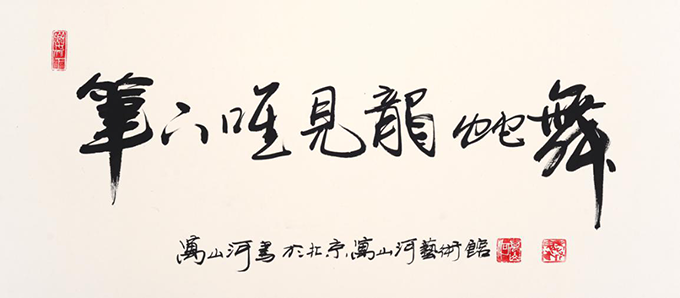 筆下唯見龍蛇舞
萬山河書於北京萬山河藝術館